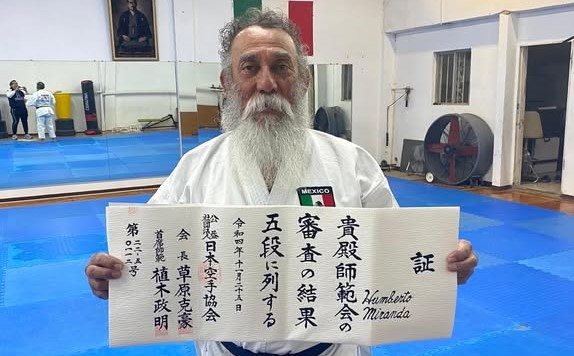 証
Humberto
Miranda
貴殿師範会の
審査の結果
五段に列する
令和四年十一月二十五日
公益社団法人日本空手協会
会長 草原克豪
首席師範 植木政明
MEXICO